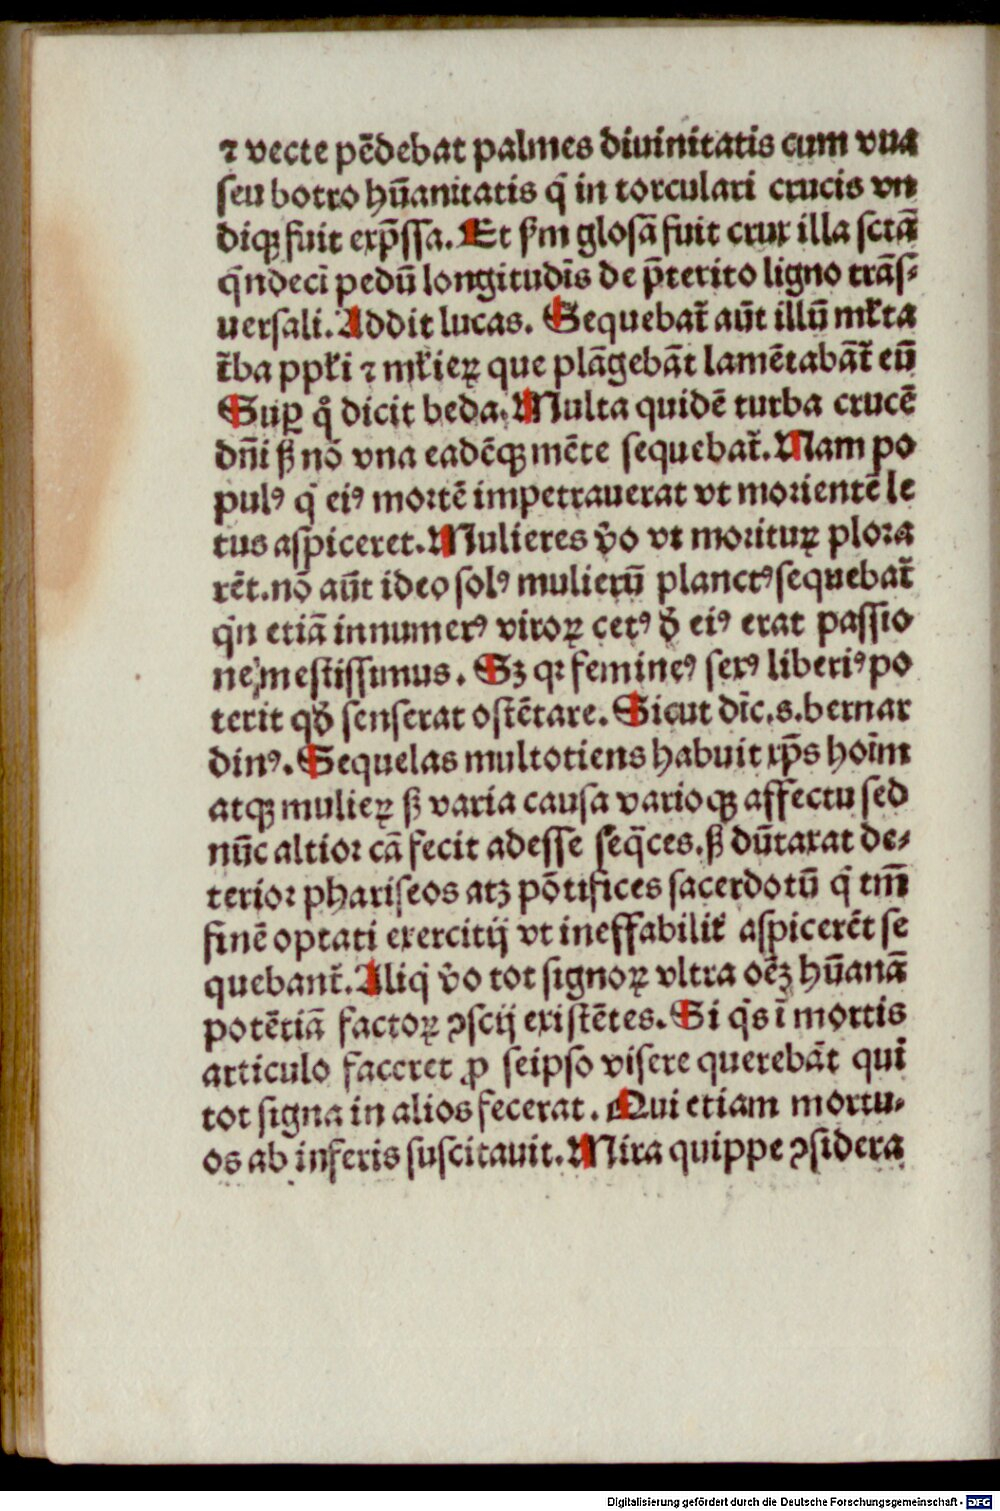 ⁊ vecte pēdebat palmes diuinitatis cum vua
seu botro hūanitatis q̄ in torculari crucis vn
diqꝫ fuit exp̄ssa. Et ẜm glosā fuit crux illa sctā
q̄ndecī pedū longitudīs de p̄terito ligno trāſ⸗
uersali. Addit lucas. Sequebat᷑ aūt illū ml̄ta
t᷑ba ppl̄i ⁊ ml̄ieꝝ que plāgebāt lamētabāt᷑ eū
Suꝑ qͦ dicit beda. Multa quidē turba crucē
dn̄i ß nō vna eadēqꝫ mēte sequebat᷑. Nam po
pulꝰ q̇ eiꝰ mortē impetrauerat vt morientē le
tus aspiceret. Mulieres v̄o vt morituꝝ plora
rēt. nō aūt ideo solꝰ mulierū planctꝰ sequebat᷑
q̇n etiā innumerꝰ viroꝝ cetꝰ ꝺ̄ eiꝰ erat passio
ne mestissimus. Sꝫ qꝛ femineꝰ sexꝰ liberiꝰ po
terit qꝺ̄ senserat ostētare. Sicut dīc.s.bernar
dinꝰ. Sequelas multotiens habuit xp̄s hoīm
atqꝫ mulieꝝ ß varia causa varioqꝫ affectu sed
nūc altior cā fecit adesse seq̄ces. ß dūtaxat de⸗
terior phariseos atꝫ pōtifices sacerdotū q̇ tm̄
finē optati exercitij vt ineffabilit᷑ aspicerēt se
quebant᷑. Aliq̇ v̄o tot signoꝝ vltra oēꝫ hūanā
potētiā factoꝝ ꝯscij existētes. Si q̇s ī mortis
articulo faceret ꝓ seipso visere querebāt qui
tot signa in alios fecerat. Qui etiam mortu⸗
os ab inferis suscitauit. Mira quippe ꝯsidera
Digitalisierung gefördert durch die Deutsche Forschungsgemeinschaft - DFG